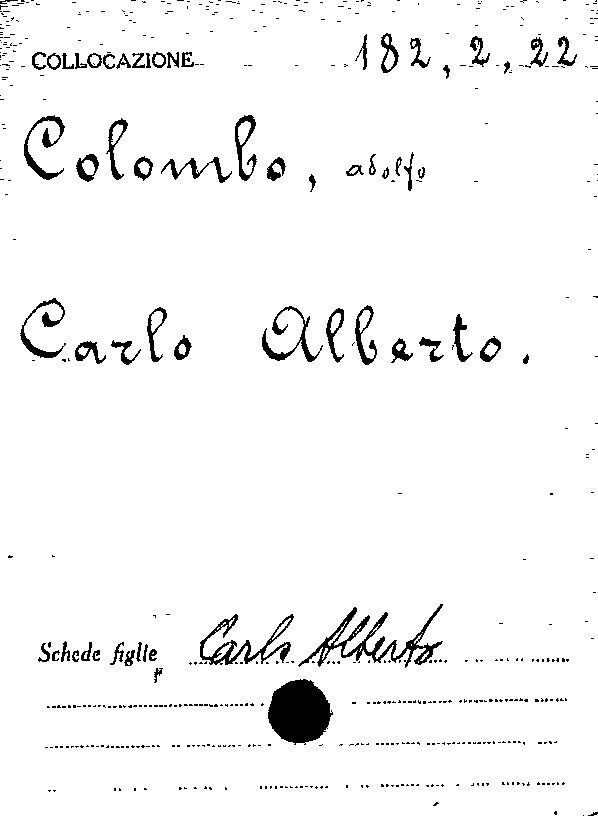 COLLOCAZIONE 182, 2, 22
Colombo, adolfo
Carlo Alberto.
Schede figlie Carlo Alberto